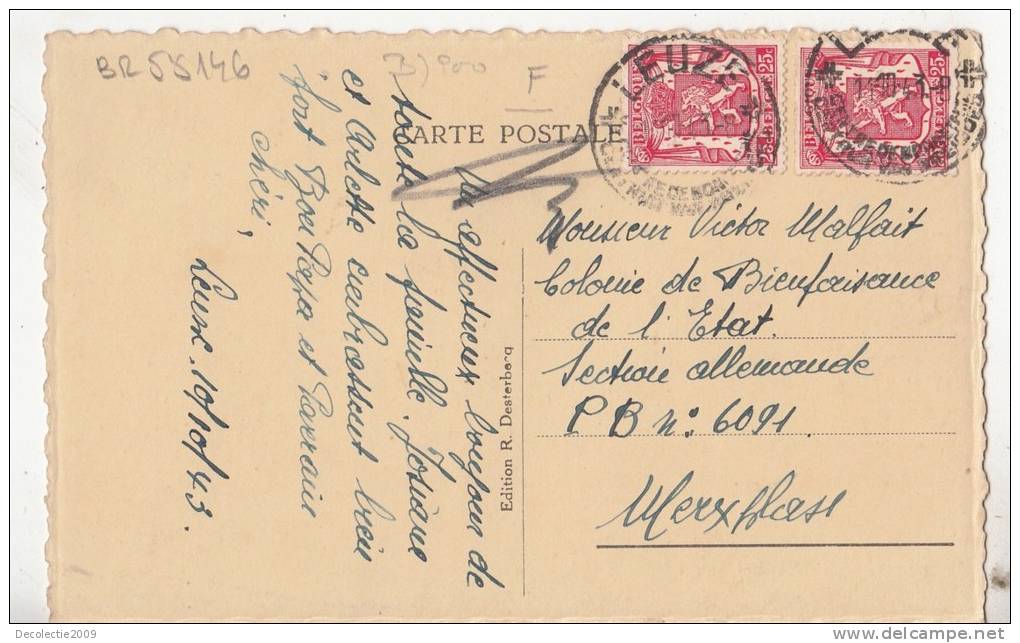 BR 55146
F
CARTE POSTALE
LEUZE
BELGIQUE 25c BELGIË
BELGIQUE 25c BELGIË
Monsieur Victor Malfait
Colonie de Bienfaisance
de l'Etat.
Section allemande
P B n°: 6091.
Merxplass
Edition R. Desterbecq
Un affectueux bonjour de
toute la famille. Josiane
et Arlette embrassent bien
fort Bon Papa et Parrain
chéri,
Leuze. 10/10/43.
Decolectie2009
delcampe.net